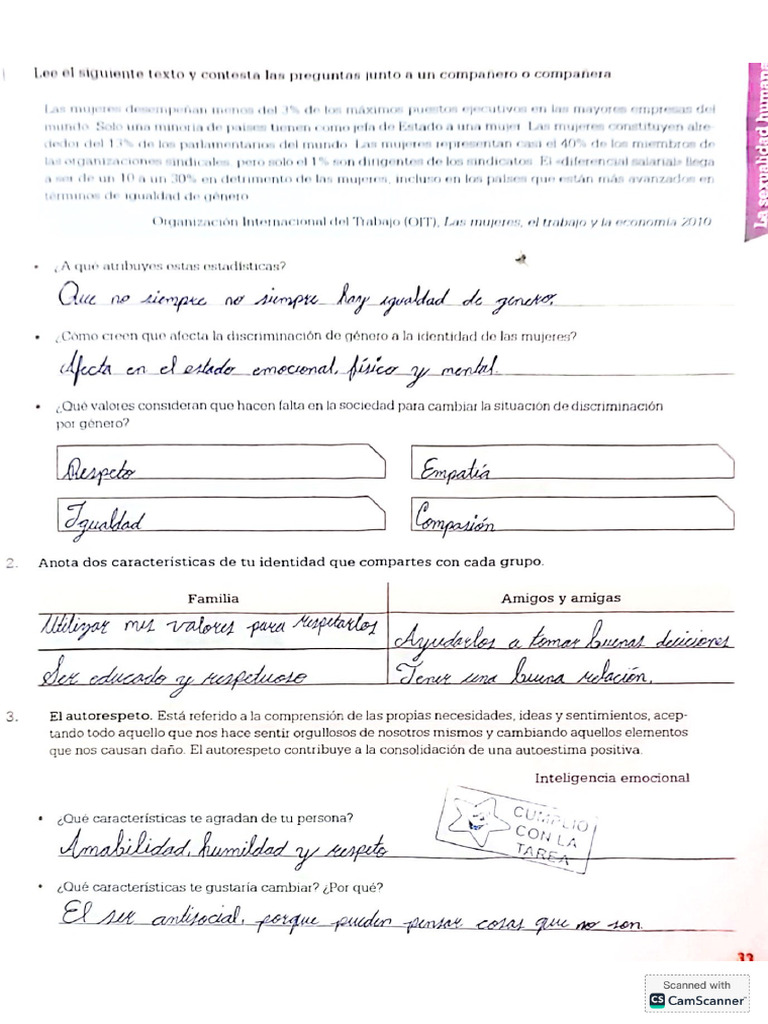 Lee el siguiente texto y contesta las preguntas junto a un compañero o compañera
Las mujeres desempeñan menos del 3% de los máximos puestos ejecutivos en las mayores empresas del
mundo. Solo una minoría de países tienen como jefa de Estado a una mujer. Las mujeres constituyen alre-
dedor del 13% de los parlamentarios del mundo. Las mujeres representan casi el 40% de los miembros de
las organizaciones sindicales, pero solo el 1% son dirigentes de los sindicatos. El «diferencial salarial» llega
a ser de un 10 a un 30% en detrimento de las mujeres, incluso en los países que están más avanzados en
términos de igualdad de género
Organización Internacional del Trabajo (OIT), Las mujeres, el trabajo y la economía 2010
La sexualidad humana
• ¿A qué atribuyes estas estadísticas?
Que no siempre no siempre hay igualdad de genero.
• ¿Cómo creen que afecta la discriminación de género a la identidad de las mujeres?
Afecta en el estado emocional, físico y mental.
• ¿Qué valores consideran que hacen falta en la sociedad para cambiar la situación de discriminación
por género?
Respeto
Empatía
Igualdad
Compasión
2. Anota dos características de tu identidad que compartes con cada grupo.
Familia
Amigos y amigas
Utilizar mis valores para respetarlos
Ayudarlos a tomar buenas deiciones
Ser educado y respetuoso
Tener una buena relación.
3. El autorespeto. Está referido a la comprensión de las propias necesidades, ideas y sentimientos, acep-
tando todo aquello que nos hace sentir orgullosos de nosotros mismos y cambiando aquellos elementos
que nos causan daño. El autorespeto contribuye a la consolidación de una autoestima positiva.
Inteligencia emocional
• ¿Qué características te agradan de tu persona?
CUMPLIO
CON LA
TAREA
Amabilidad, humildad y respeto
• ¿Qué características te gustaría cambiar? ¿Por qué?
El ser antisocial, porque pueden pensar cosas que no son.
33
Scanned with
CS CamScanner